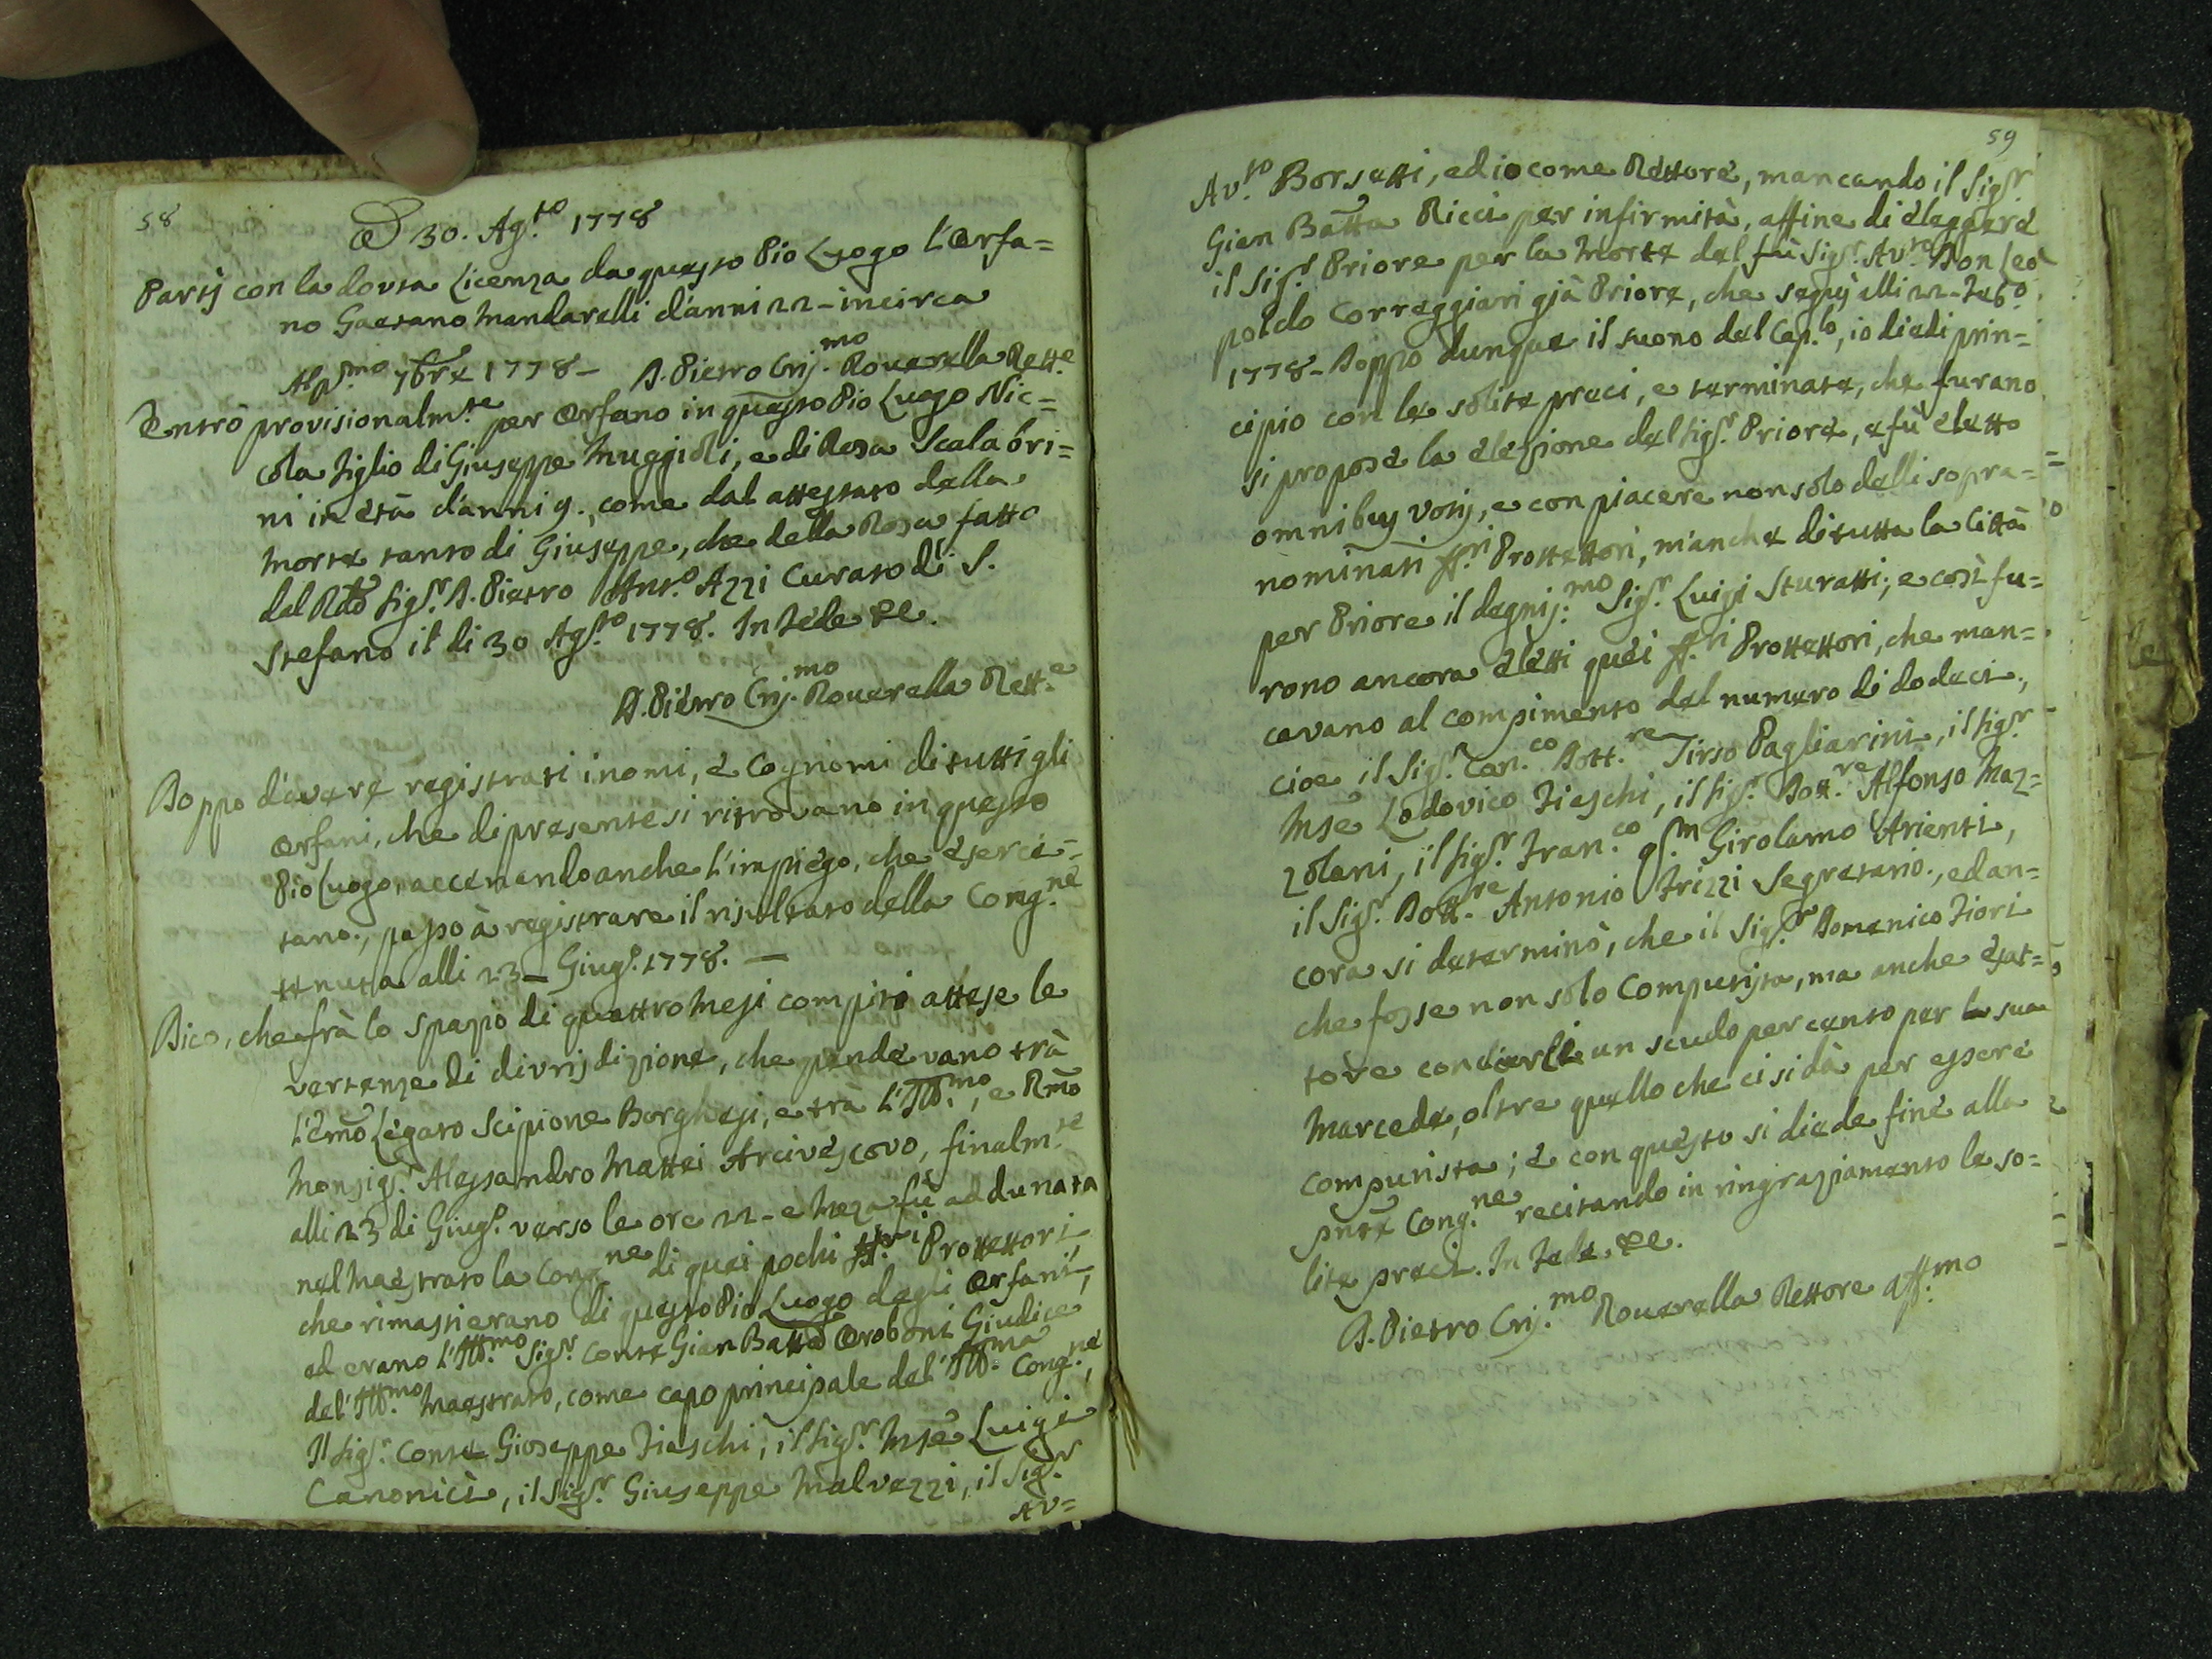 58
A 30. Ag.to 1778
Partij con la dovta Licenza da questo Pio Luogo l'Orfa=
no Gaetano Mandarelli d'anni 22 - incirca
Alp.mo 7bre 1778 - D. Pietro Cris.mo Roverella Rett.e
Entrò provisionalm.te per Orfano in questo Pio Luogo Nic=
cola figlio di Giuseppe Muggioli, e di Rosa Scalabri=
ni in età d'anni 9., come dal attestato della
morte tanto di Giuseppe, che della Rosa fatto
dal Rdo Sig.r D. Pietro Ant.o Azzi Curato di S.
Stefano il di 30 Ag.to 1778. In Fede &c.
D. Pietro Cris.mo Roverella Rett.e
Doppo d'avere registrati i nomi, e Cognomi di tutti gli
Orfani, che di presente si ritrovano in questo
Pio Luogo, accenando anche l'impiego, che eserci=
tano, passo à registrare il risultato della Cong.ne
ttnutta alli 23 - Giug.o 1778. —
Dico, che frà lo spazio di quattro Mesi compiti attese le
vertenze di divrisdizione, che pendevano trà
l'Emo Legato Scipione Borghesi, e trà l'Ill.mo, e Rmo
Monsig.r Alessandro Mattei Arcivescovo, finalm.te
alli 23 di Giug.o verso le ore 22 - e Meza fù addunata
nel Maestrato la Cong.ne di quei pochi SS.ri Prottettori
che rimasti erano di questo Pio Luogo degli Orfani,
ed erano l'Ill.mo Sig.r Conte Gian Batta Oroboni Giudice
del'Ill.mo Maestrato, come capo principale del'Ill.ma Cong.ne,
Il Sig.r Conte Gioseppe Fieschi, il Sig.r Mse Luigi
Canonici, il Sig.r Giuseppe Malvezzi, il Sig.r
Av=
59
Av.to Borsetti, ed io come Rettore, mancando il Sig.r
Gian Batta Ricci per infirmità, affine di eleggere
il Sig.r Priore per la Morte del fù Sig.r Av.to Don Leo
poldo Correggiari già Priore, che seguì alli 22 - Feb.o
1778 - Doppo dunque il suono del Cap.lo, io diedi prin=
cipio con le solite preci, e terminate, che furano
si propose la elezione del Sig.r Priore, e fù eletto
omnibus votis, e con piacere non solo delli sopra=
nominati SS.ri Prottettori, m'anche di tutta la Città
per Priore il degnis.mo Sig.r Luigi Sturatti; e così fu=
rono ancora eletti quei SS.ri Prottettori, che man=
cavano al compimento del numero di dodeci,
cioe il Sig.r Can.co Dott.re Tirso Pagliarini, il Sig.r
Mse Lodovico Fieschi, il Sig.r Dott.re Alfonso Maz=
zolani, il Sig.r Fran.co q.m Girolamo Arienti,
il Sig.r Dott.re Antonio Frizzi Segretario, ed an=
cora si determinò, che il Sig.r Domenico Fiori
che fosse non solo Computista, ma anche esat=
tore con darli un scudo per cento per la sua
Mercede, oltre quello che ci si dà per essere
Computista; e con questo si diede fine alla
pnte Cong.ne recitando in ringraziamento le so=
lite preci. In Fede &c.
D. Pietro Cris.mo Roverella Rettore aff.mo